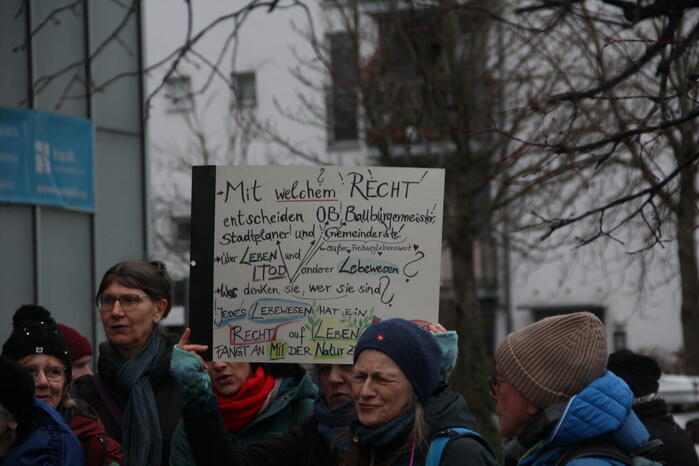 Mit welchem RECHT
entscheiden OB, Baubürgermeister,
Stadtplaner und Gemeinderäte?
außer Freiburglebenswert
Über LEBEN und
TOD anderer Lebewesen?
Was denken sie, wer sie sind?
JEDES LEBEWESEN HAT EIN
RECHT auf LEBEN
FANGT AN Mit DER Natur